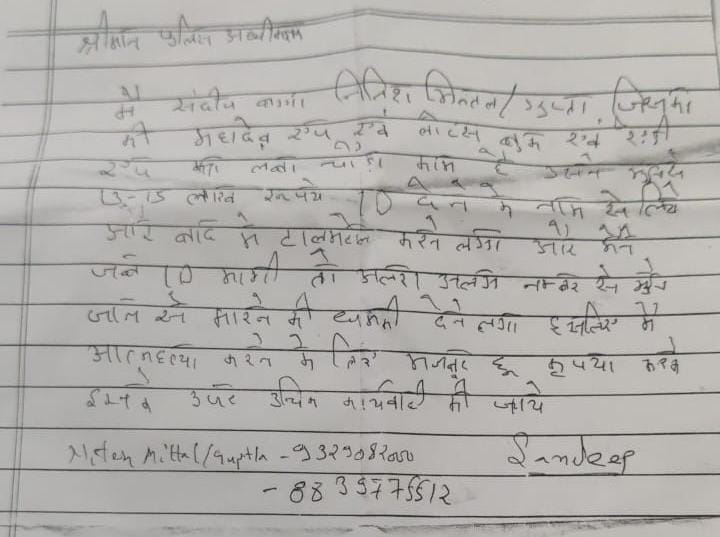 श्रीमान पुलिस अधीक्षक
मै संदीप बग्गा नितिश मित्तल/गुप्ता जिसका
की महादेव एप एवं लोटस बुक एवं रेड्डी
एप का लम्बा चौड़ा काम है उसने मुझसे
10-15 लाख रूपये ID देने के नाम से लिये
और बाद मे टालमटोल करने लगा और मैने
जब ID मांगी तो अलग अलग नम्बर से मुझे
जान से मारने की धमकी देने लगा इसलिए मै
आत्महत्या करने के लिए मजबूर हू कृपया करके
इनके उपर उचित कार्यवाही की जाये
Niten Mittal/Guptta - 9329082000 Sandeep
- 8839775512